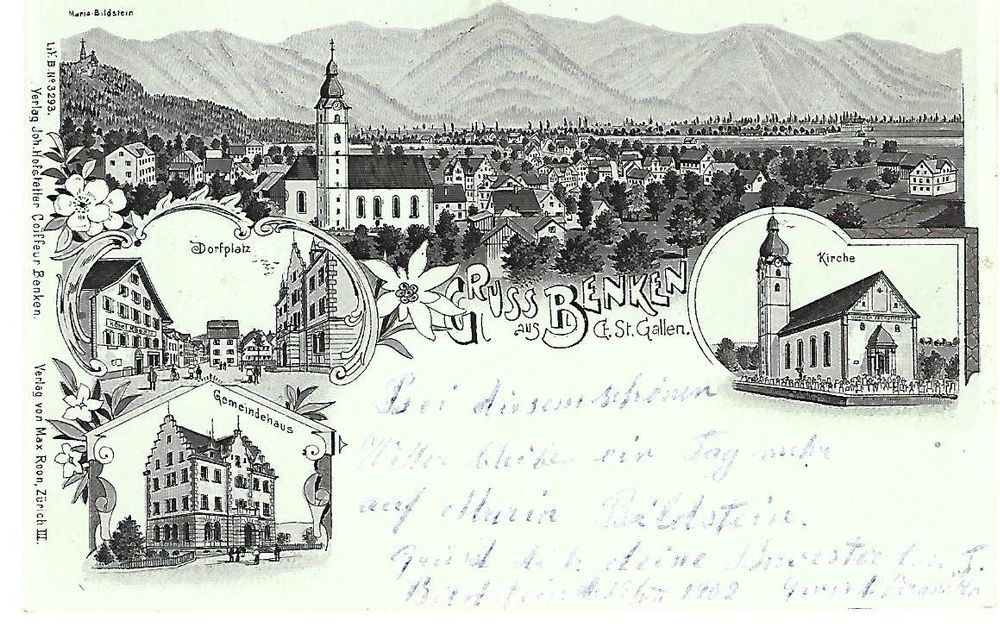 Maria-Bildstein
Lit. B. No 3293.
Verlag Joh. Hofstetter Coiffeur Benken.
Verlag von Max Roon, Zürich III.
Dorfplatz
Kirche
Gruss
aus Benken
Ct. St. Gallen.
Gemeindehaus
Bei diesem schönen
bleibe ein Tag mehr
auf Maria Bildstein.
dich deine Schwester
Bildstein 1902